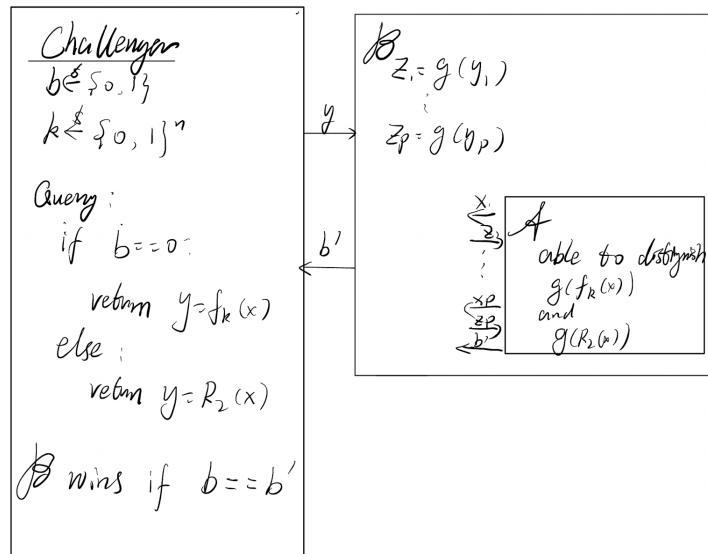 Challenger
b ⇐$ {0, 1}
k ⇐$ {0, 1}ⁿ
Query:
if b==0:
return y=fₖ(x)
else:
return y=R₂(x)
B wins if b==b'
y
b'
B
z₁=g(y₁)
⋮
zₚ=g(yₚ)
x₁
z₁
⋮
xₚ
zₚ
b'
A
able to distinguish
g(fₖ(x))
and
g(R₂(x))